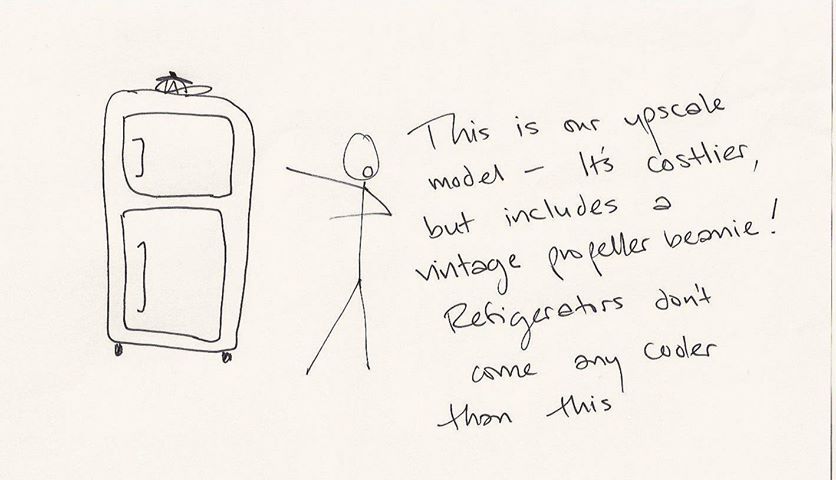 This is our upscale
model - It's costlier,
but includes a
vintage propeller beanie!
Refigerators don't
come any cooler
than this